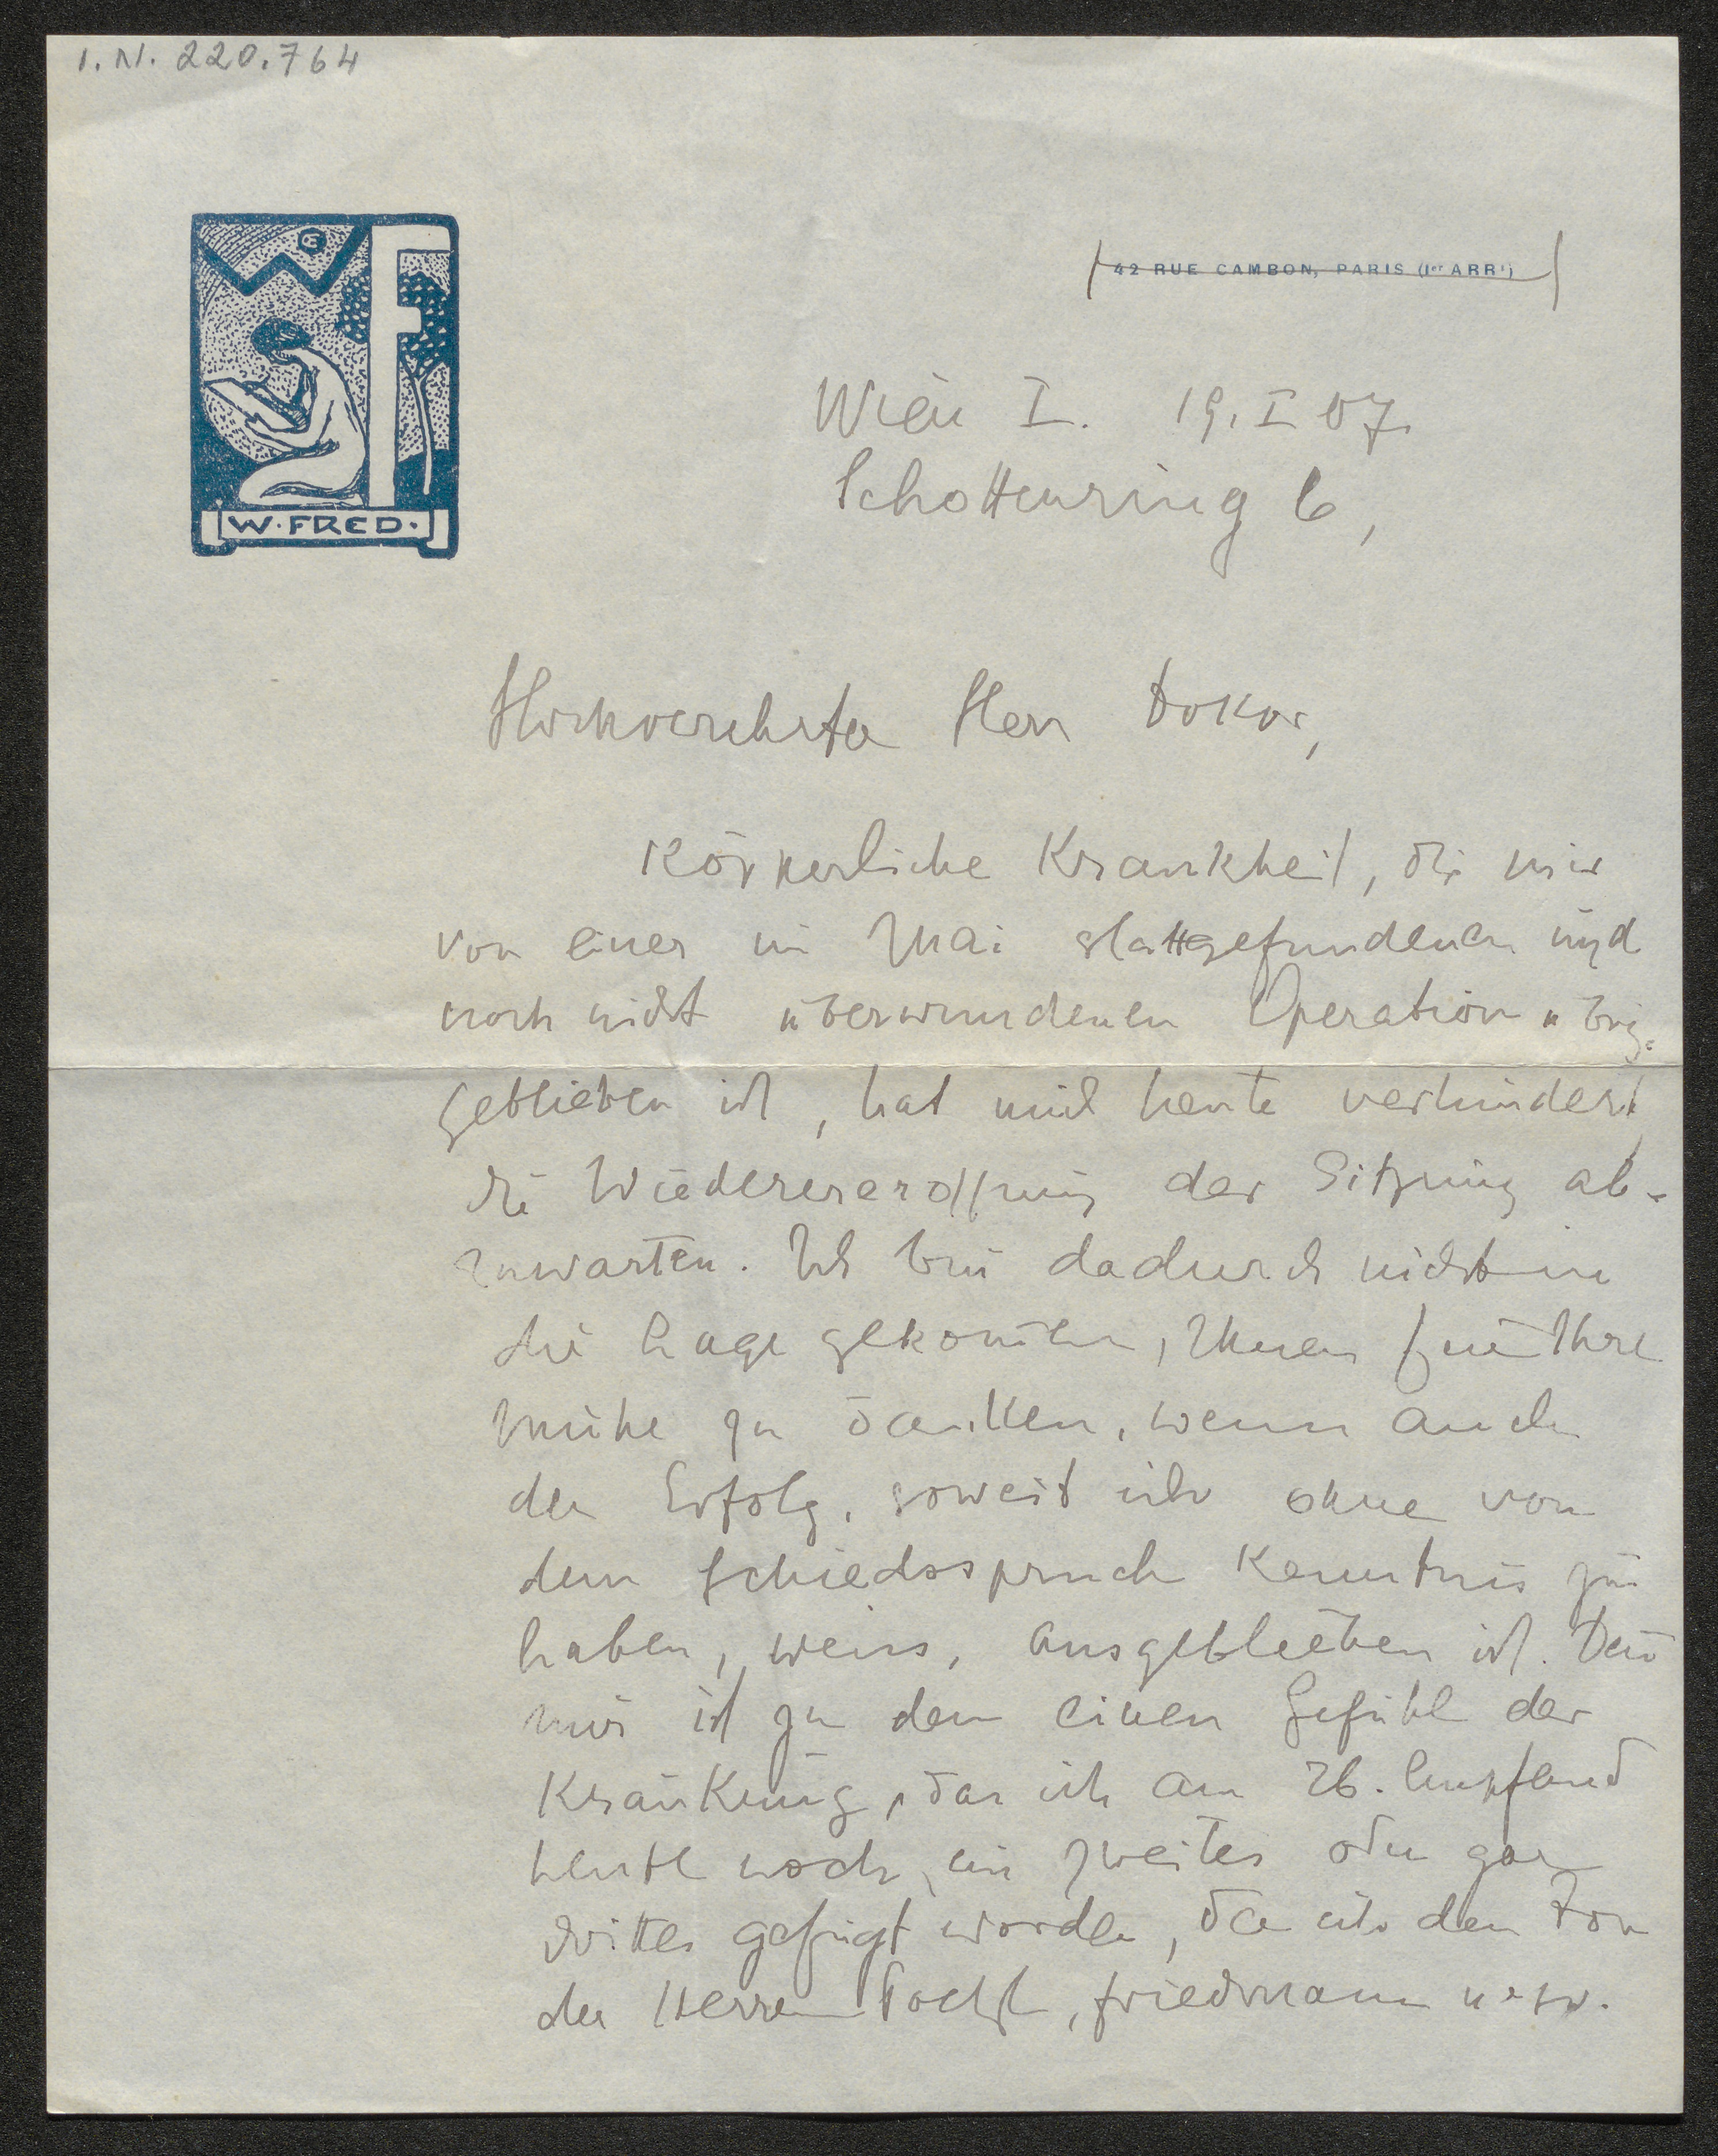 I.N. 220.764
W F
W. FRED.
(42 RUE CAMBON, PARIS (Ier ARRt)
Wien I. 19. I 07.
Schottenring 6,
Hochverehrter Herr Doktor,
Körperliche Krankheit, die mir
von einer im Mai stattgefundenen und
noch nicht überwundenen Operation übrig
geblieben ist, hat mich heute verhindert,
die Wiedereröffnung der Sitzung ab-
zuwarten. Ich bin dadurch nicht in
die Lage gekommen, Ihnen für Ihre
Mühe zu danken, wenn auch
der Erfolg, soweit ich ohne von
dem Schiedsspruch Kenntnis zu
haben, weiss, ausgeblieben ist. Denn
mir ist zu dem einen Gefühl der
Kränkung, das ich am 26. empfand
heute noch ein zweites oder gar
drittes gefügt worden, da ich den Ton
der Herren, Friedmann usw.